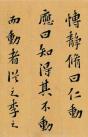 愽静脩曰仁動
應曰知得其不動
而動者從之李之